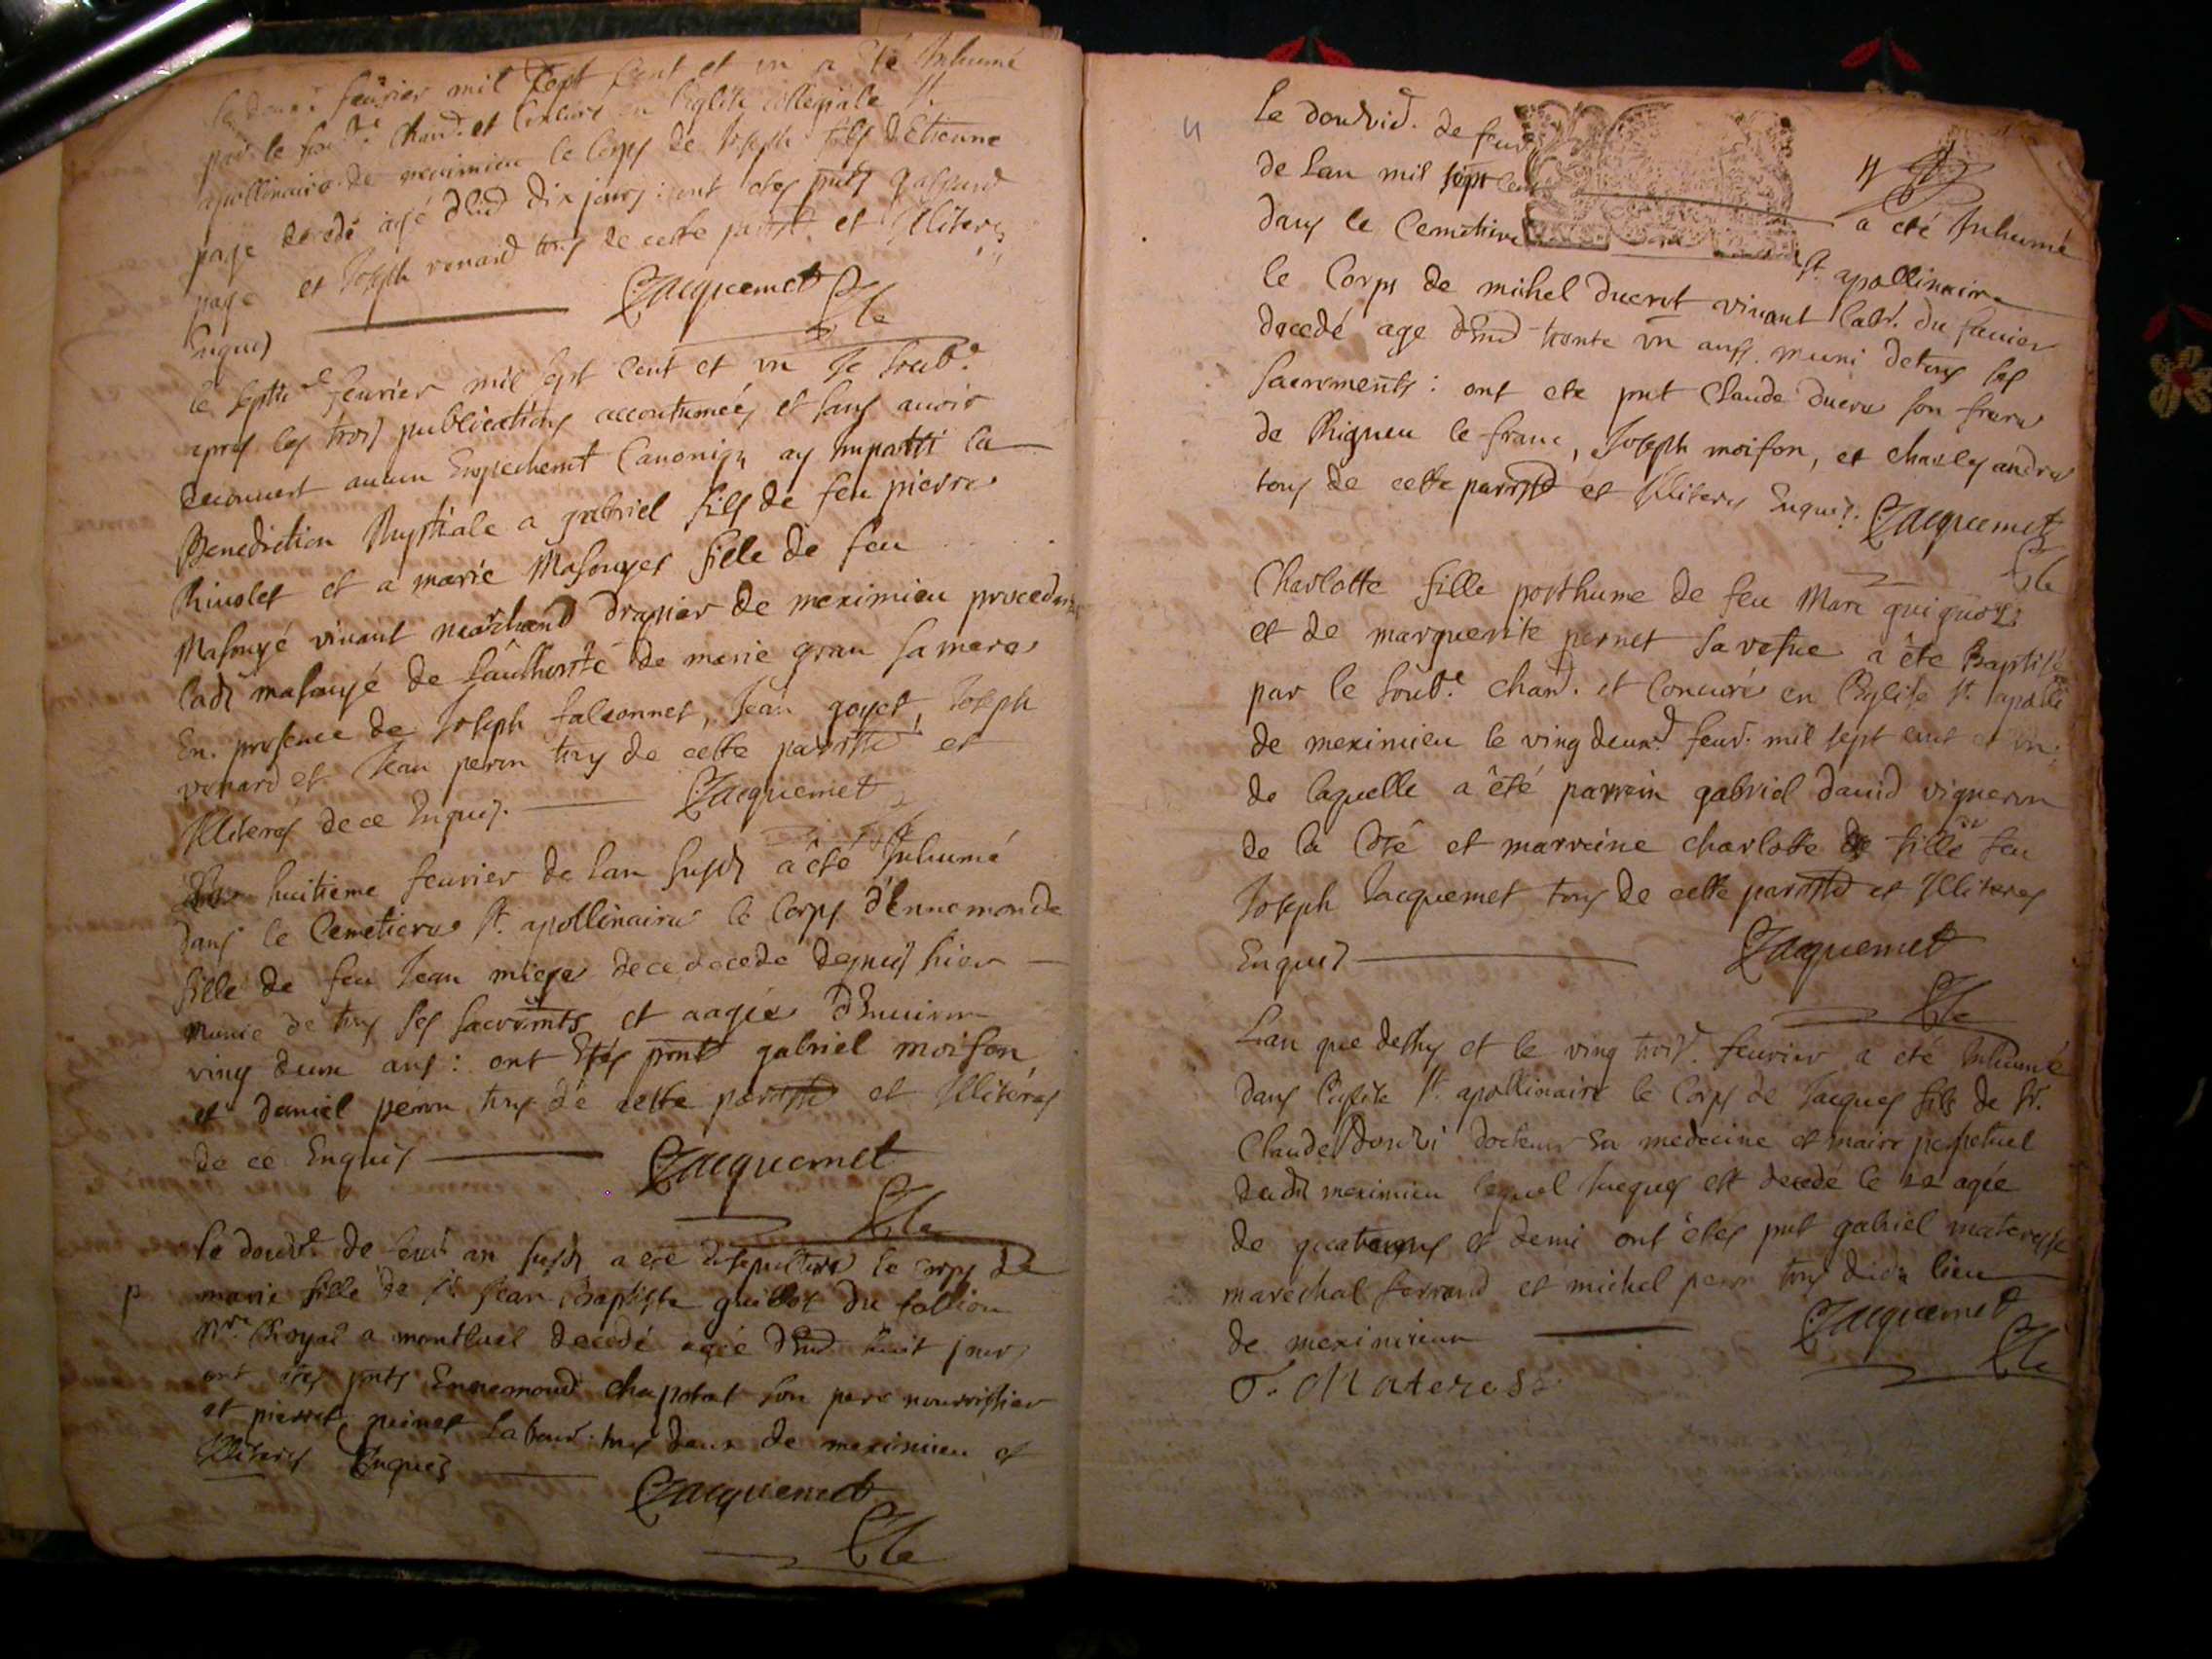 fevrier mil sept cent et un a été Inhumé
par le Chan.e et Concuré en l'eglise collegiale St.
apollinaire de meximieu le Corps de Joseph fils d'Etienne
page decedé agé d'Env dix jours : ont etes pnts gaspard
page et Joseph venard tous de cette parr.sse et Illiteres
Enquis Jacquemet
le septie fevrier mil sept Cent et un Je soub.e
apres les trois publications accoutumées et sans avoir
decouvert aucun Empechemt Canoniq, ay Imparti la
Benediction Nuptiale a gabriel fils de feu pierre
Rivolet et a marie Masouyer fille de feu
Masouyé vivant marchand drapier de meximieu procedante
ladt masouyé de l'authorité de marie gran sa mere
En presence de Joseph falconnet, Jean goyet, Joseph
venard et Jean peron tous de cette parrsse et
Illiteres de ce Enquis. Jacquemet
huitieme fevrier de lan susdt a été Inhumé
dans le Cemetiere St. apollinaire le Corps d'Ennemonde
fille de feu Jean miege decedée depuis hier
munie de tous ses sacremts et aagée d'Environ
ving deux ans : ont Etés pnt gabriel moison
et daniel peron tous de cette parrsse et Illiteres
de ce Enquis Jacquemet
le douze de fevr an susdt a été le corps de
p marie fille de Sr. Jean Baptiste guillot du follion
Nre. Royal a montluel decedé agée d'Env huit jours
ont etes pnts Ennemond chapotat son pere nourrissier
et pierre labour. tous deux de meximieu et
Illiteres Enquis Jacquemet
4 le de fevr
de Lan mil sept cent a été Inhumé
dans le Cemetiere St. apollinaire
le Corps de michel ducret vivant labr. du
decedé age d'Env trente un ans. muni de tous les
Sacrements : ont ete pnt Claude ducret son frere
de Rigneu le franc, Joseph moison, et charles andre
tous de cette parrsse et Illiteres Enquis. Jacquemet
Charlotte fille posthume de feu Marc
et de marguerite pernet sa vefve a été Baptisée
par le soub.e chan. et Concuré en l'Eglise St. apolli
de meximieu le ving deux fevr. mil sept cent et un.
de laquelle a été parrein gabriel david vigneron
de la Coté et marreine charlotte fille feu
Joseph Jacquemet tous de cette parrsse et Illiteres
Enquis Jacquemet
L'an que dessus et le ving trois. fevrier a eté Inhumé
dans l'eglise St. apollinaire le Corps de Jacques fils de Sr.
Claude docteur En medecine et maire perpetuel
dudt meximieu lequel Jacques est decedé le 22 agée
de quatre ans et demi ont etes pnt gabriel materesse
marechal ferrand et michel peron tous dudt lieu
de meximieux Jacquemet
G. Materesse